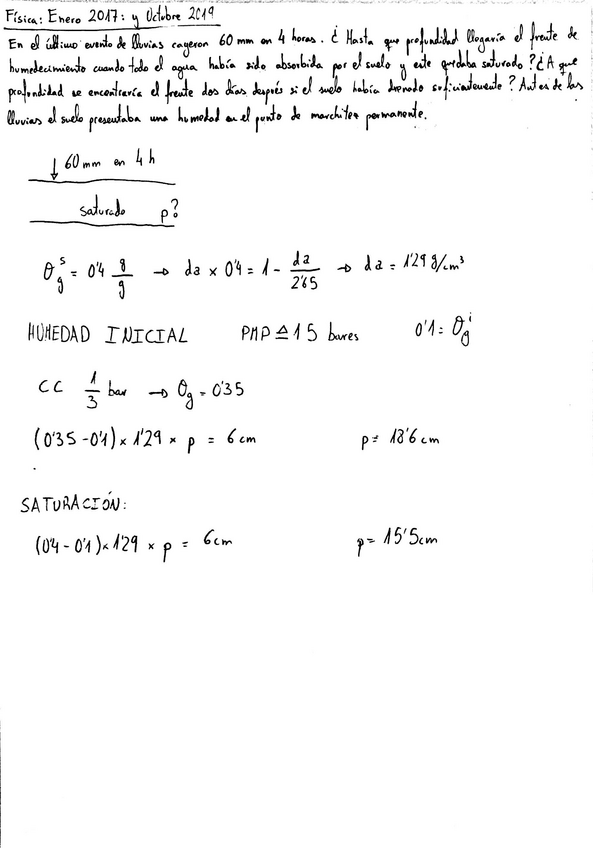 Física: Enero 2017: y Octubre 2019
En el último evento de lluvias cayeron 60 mm en 4 horas. ¿ Hasta que profundidad llegaría el frente de
humedecimiento cuando todo el agua había sido absorbida por el suelo y este quedaba saturado? ¿A que
profundidad se encontraría el frente dos días después si el suelo había drenado suficientemente? Antes de las
lluvias el suelo presentaba una humedad en el punto de marchitez permanente.
↓ 60 mm en 4 h
saturado p?
θ_g^s = 0'4 g/g → da x 0'4 = 1 - da/2'65 → da = 1'29 g/cm³
HUMEDAD INICIAL PMP ≙ 15 bares 0'1 = θ_g^i
CC 1/3 bar → θ_g = 0'35
(0'35 - 0'1) x 1'29 x p = 6 cm p = 18'6 cm
SATURACIÓN:
(0'4 - 0'1) x 1'29 x p = 6cm p = 15'5cm